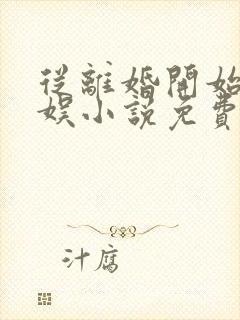 從離婚開始
娛小說免費
汁腐